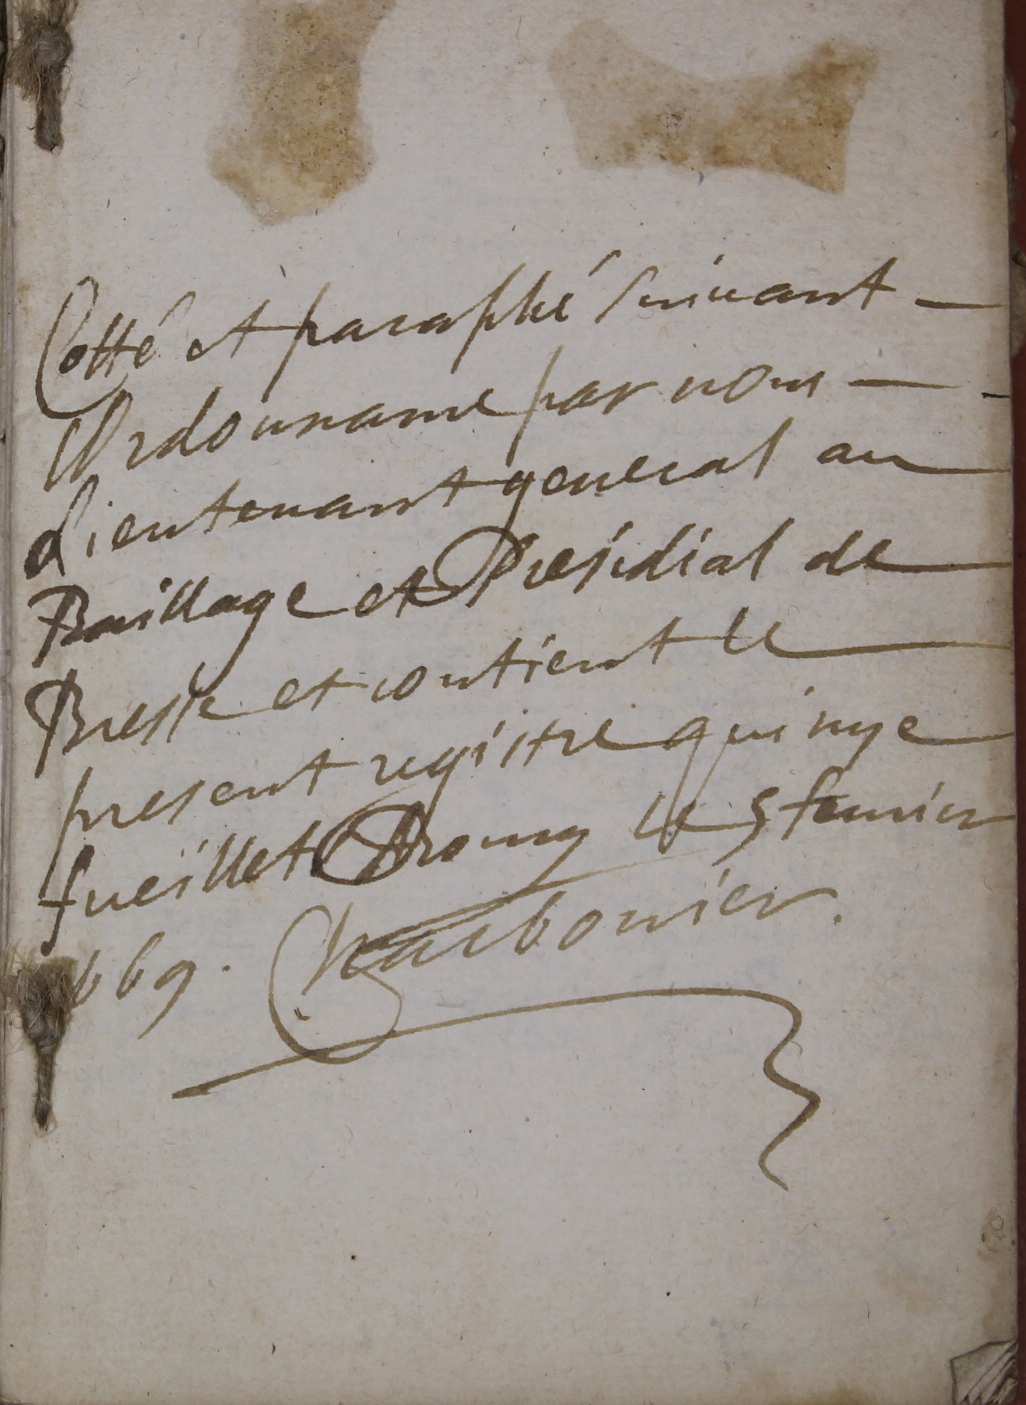 Cotté et paraphé suivant
l'Ordonnance par nous
Lieutenant general au
Baillage et Presidial de
Bresse et contient le
present registre quinze
fueillet Bourg le 5 feurier
1669. Charbonier.